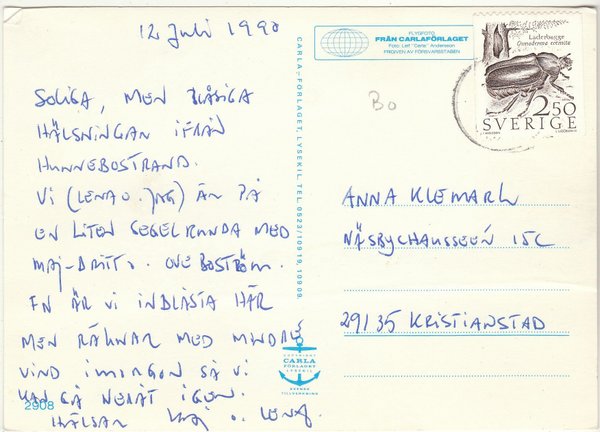 12 Juli 1990
SOLIGA, MEN BLÅSIGA
HÄLSNINGAR IFRÅN
HUNNEBOSTRAND.
VI (LENA O. JAG) ÄR PÅ
EN LITEN SEGELRUNDA MED
MAJ-BRITT O. OVE BOSTRÖM.
EN ÄR VI INBLÅSTA HÄR
MEN RÄKNAR MED MINDRE
VIND IMORGON SÅ VI
KAN GÅ NERÅT IGEN.
HÄLSAR O. LENA.
2908
CARLA-FÖRLAGET, LYSEKIL TEL. 0523/10919, 10909
COPYRIGHT
CARLA
FÖRLAGET
LYSEKIL
SVENSK
TILLVERKNING
FLYGFOTO
FRÅN CARLAFÖRLAGET
Foto: Leif "Carla" Andersson
FRIGIVEN AV FÖRSVARSSTABEN
Bo
Läderbagge
Osmoderma eremita
2.50
SVERIGE
ANNA KLEMARK
NÄSBYCHAUSSEÉN 15C
29135 KRISTIANSTAD